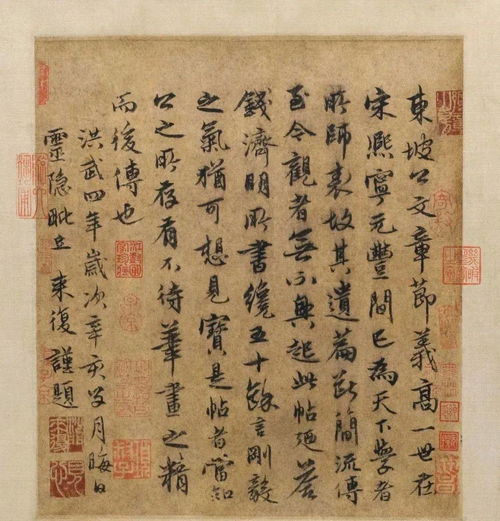 東坡公文章節義高一世在
宋熙寧元豐間已為天下學者
所師表故其遺篇斷簡流傳
至今觀者無不興起此帖廼荅
錢濟明所書纔五十餘言剛毅
之氣猶可想見寶是帖者當知
公之所存有不待筆畫之精
而後傳也
洪武四年歲次辛亥月晦日
靈隱毗丘來復謹題